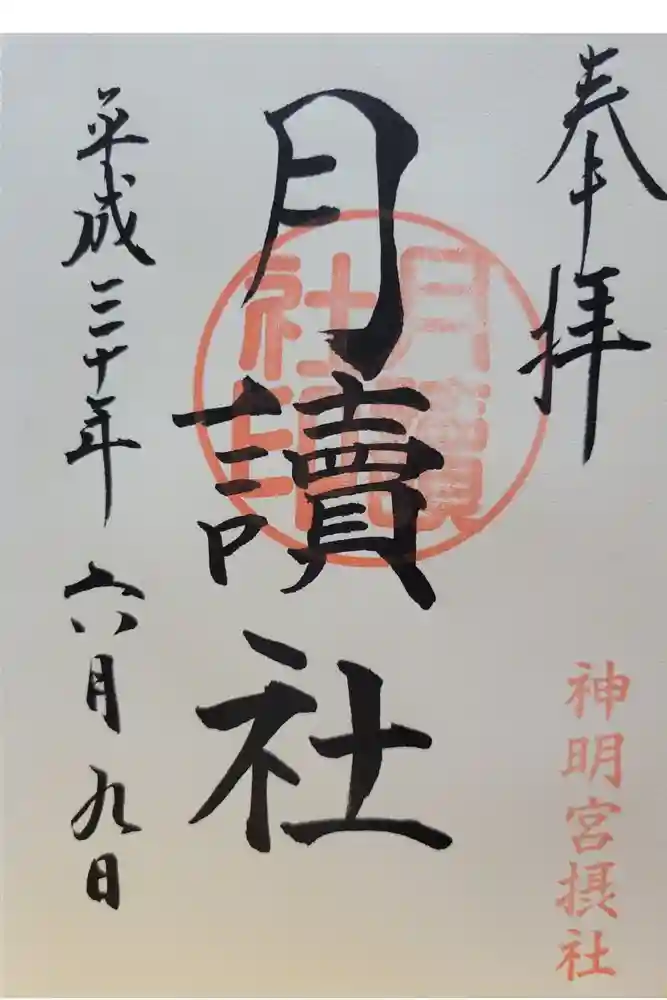 奉拝
神明宮摂社
月讀社
月讀
社印
平成三十年 六月九日